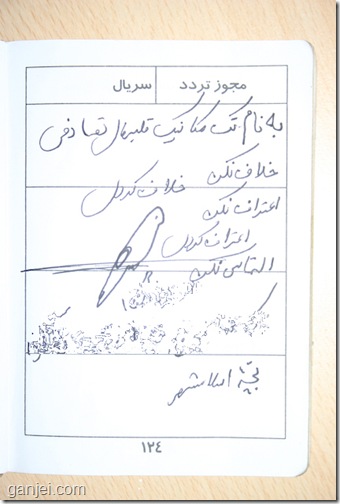 مجوز تردد سریال
به نام تک مکانیک قلب‌های تصادفی
خلاف نکن
خلاف کردی
اعتراف نکن
اعتراف کردی
التماس نکن
بچه اسلامشهر
۱۲۴
ganjei.com